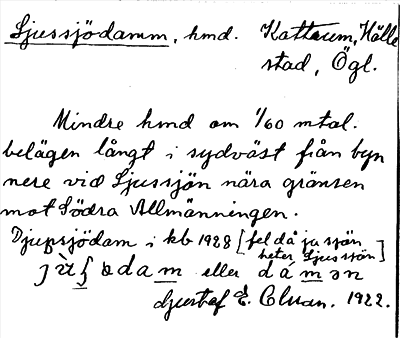 Ljussjödamm, hmd. Kattrum, Hälle
stad, Ögl.
Mindre hmd om 1/60 mtal.
belägen långt i sydväst från byn
nere vid Ljussjön nära gränsen
mot Södra Allmänningen.
Djupsjödam i kb 1928 [fel då ju sjön
heter Ljussjön]
eller
Gustaf E. 1922.